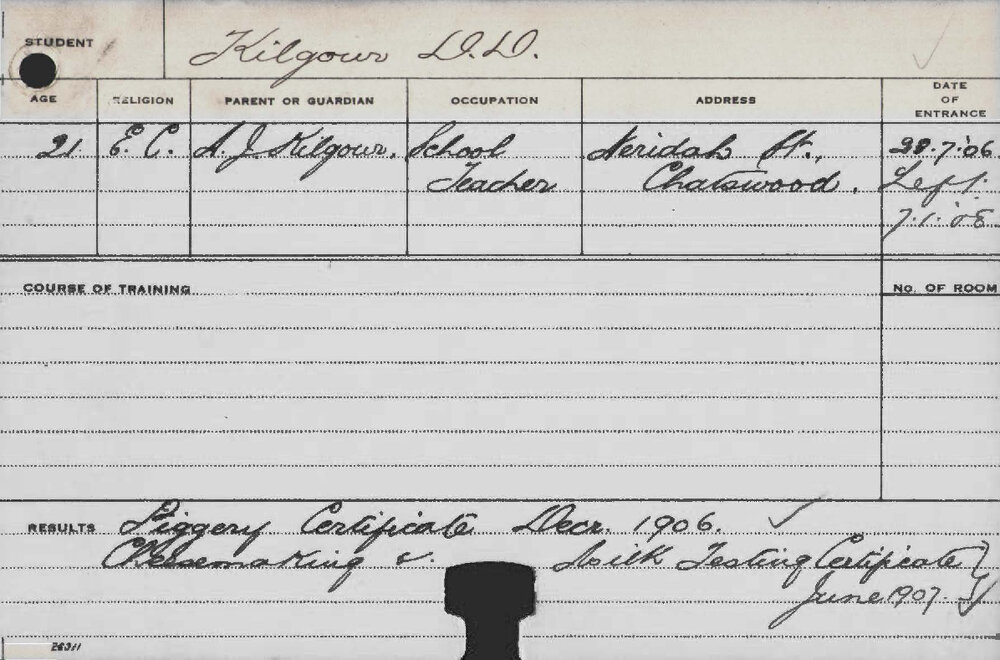 STUDENT Kilgour D.D.
AGE RELIGION PARENT OR GUARDIAN OCCUPATION ADDRESS DATE OF ENTRANCE
21 E. C. A. J. Kilgour. School Neridah St., 28.7.'06
Teacher Chatswood. Left
7.1.'08
COURSE OF TRAINING No. OF ROOM
RESULTS Piggery Certificate Decr. 1906. ✓
Cheesemaking & Milk Testing Certificate }
June 1907. ✓
26311